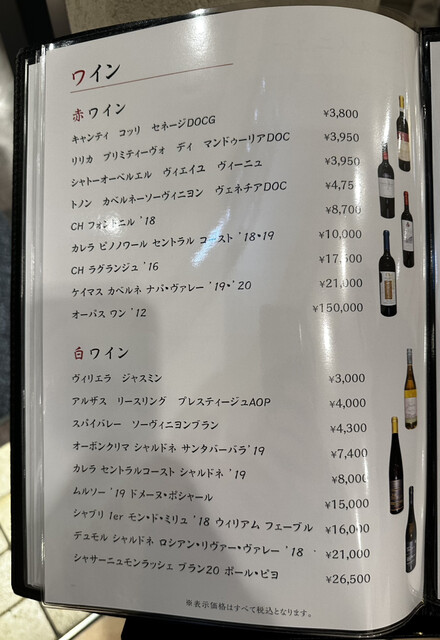 ワイン
赤ワイン
キャンティ コッリ セネージDOCG ¥3,800
リリカ プリミティーヴォ ディ マンドゥーリアDOC ¥3,950
シャトーオーベルエル ヴィエイユ ヴィーニュ ¥3,950
トノン カベルネーソーヴィニヨン ヴェネチアDOC ¥4,75
CH フォントニル '18 ¥8,700
カレラ ピノノワール セントラル コースト '18・19 ¥10,000
CH ラグランジュ '16 ¥17,500
ケイマス カベルネ ナパ・ヴァレー '19・'20 ¥21,000
オーパス ワン '12 ¥150,000
白ワイン
ヴィリエラ ジャスミン ¥3,000
アルザス リースリング プレスティージュAOP ¥4,000
スパイバレー ソーヴィニヨンブラン ¥4,300
オーボンクリマ シャルドネ サンタバーバラ'19 ¥7,400
カレラ セントラルコースト シャルドネ '19 ¥8,000
ムルソー '19 ドメーヌ・ボシャール ¥15,000
シャブリ 1er モン・ド・ミリュ '18 ウィリアム フェーブル ¥16,000
デュモル シャルドネ ロシアン・リヴァー・ヴァレー '18 ¥21,000
シャサーニュモンラッシェ ブラン20 ポール・ピヨ ¥26,500
※表示価格はすべて税込となります。